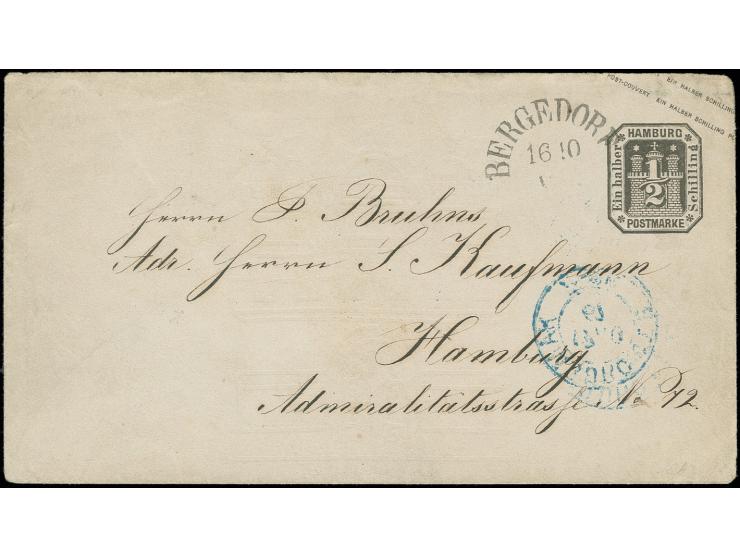 EIN HALBER SCHILLING
POST-COUVERT EIN HALBER SCHILLING
BERGEDORF
16 10
HAMBURG
Ein halber
1/2
Schilling
POSTMARKE
Herrn P. Bruhns
Adr. Herrn S. Kaufmann
Hamburg
Admiralitätsstrasse No 72.